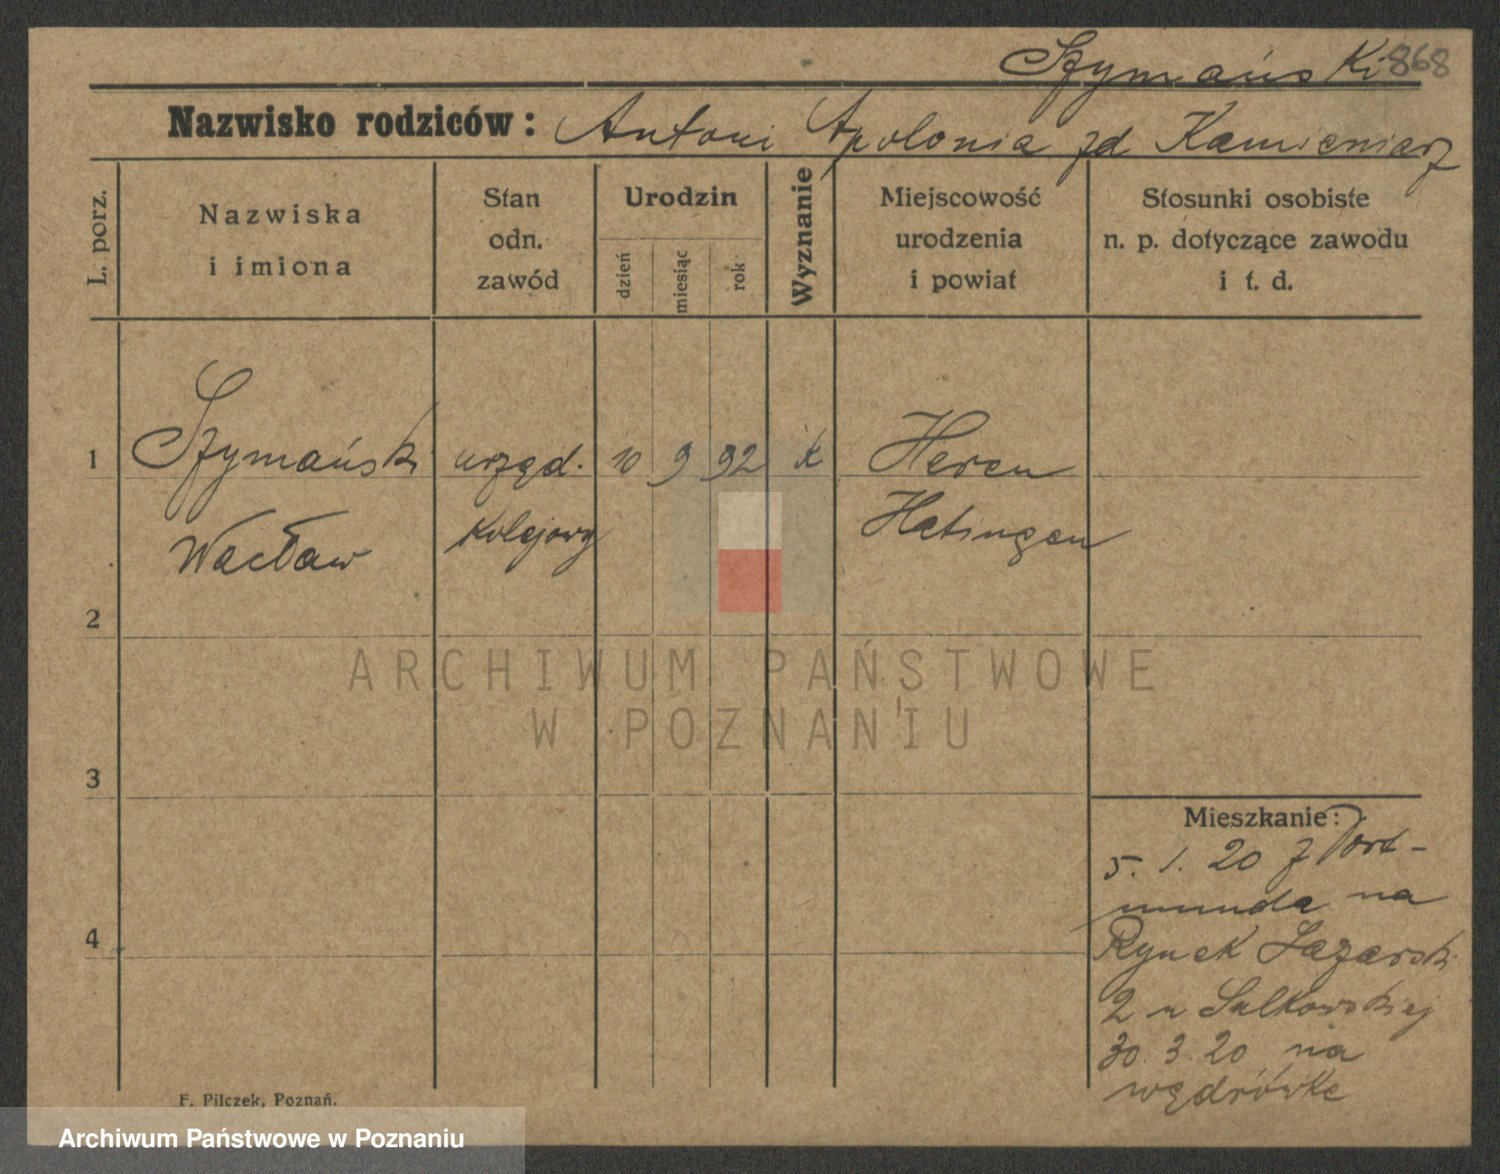 Szymański 868
Nazwisko rodziców: Antoni Apolonia zd Kamieniarz
L. porz.
Nazwiska
i imiona
Stan
odn.
zawód
Urodzin
dzień
miesiąc
rok
Wyznanie
Miejscowość
urodzenia
i powiat
Stosunki osobiste
n. p. dotyczące zawodu
i t. d.
1 Szymański urzęd. 10 9 92 k Heren
Wacław kolejowy Hatingen
2
3
4
Mieszkanie:
5. 1. 20 z Dort-
munda na
Rynek Łazarski
2 u Sulkowskiej
30. 3. 20 na
wędrówke
F. Pilczek, Poznań.
ARCHIWUM PAŃSTWOWE
W POZNANIU
Archiwum Państwowe w Poznaniu